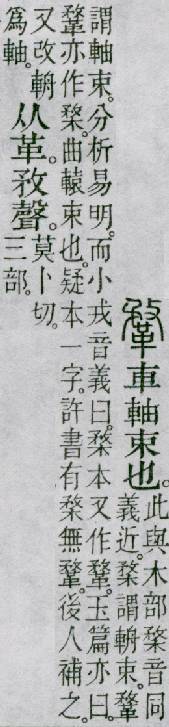 鞪車軸束也。
此與木部楘音同
義近。楘謂輈束。鞪
謂軸束。分析易明。而小戎音義曰。楘本又作鞪。玉篇亦曰。
鞪亦作楘。曲轅束也。疑本一字。許書有楘無鞪。後人補之。
又改輈
爲軸。
从革。敄聲。
莫卜切。
三部。